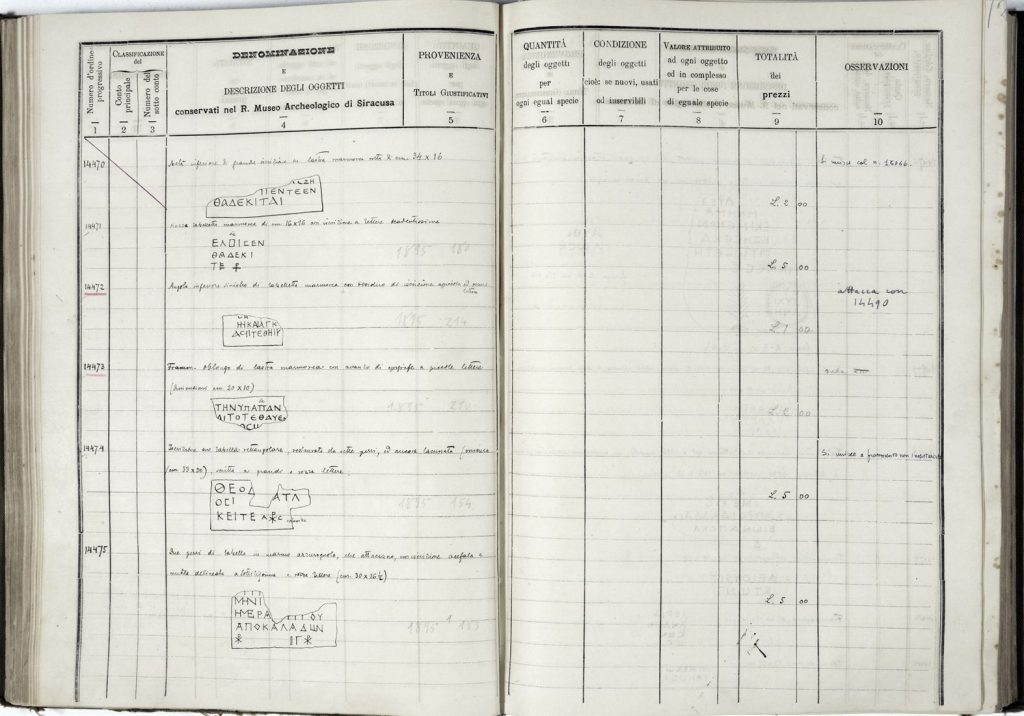 Numero d'ordine progressivo
1
CLASSIFICAZIONE
del
Conto principale
2
Numero del sotto conto
3
DENOMINAZIONE
E
DESCRIZIONE DEGLI OGGETTI
conservati nel R. Museo Archeologico di Siracusa
4
PROVENIENZA
E
TITOLI GIUSTIFICATIVI
5
QUANTITÀ
degli oggetti
per
ogni egual specie
6
CONDIZIONE
degli oggetti
cioè: se nuovi, usati
od inservibili
7
VALORE ATTRIBUITO
ad ogni oggetto
ed in complesso
per le cose
di eguale specie
8
TOTALITÀ
dei
prezzi
9
OSSERVAZIONI
10
14470
inferiore di grande iscrizione in lastra marmorea cm. 34 x 16
ΠΕΝΤΕΕΝ
ΘΑΔΕΚΙΤΑΙ
L. 2 00
Si unisce col n.
14471
Rozza tabelletta marmorea di cm 16x16 con iscrizione a lettere
ΘΑΔΕΚΙ
ΤΕ
1895
L. 5 00
14472
Angolo inferiore sinistro di tabelletta marmorea con residuo di iscrizione
1895 214
L. 1 00
attacca con
14490
14473
Framm. oblungo di lastra marmorea con avanzo di epigrafe a piccole lettere
(dimensioni cm 20 x 10)
ΤΗΝΥΠΑΤΙΑΝ
1895
L. 2 00
14474
Iscrizione su tabella rettangolare, restaurata da pezzi, ed ancora lacunata (misura
cm 33 x 20), mutila a grandi e rozze lettere.
ΘΕΟΔ
ΟΕΙ ΑΤΛ
ΚΕΙΤΕ
1895 154
L. 5 00
Si unisce a frammento non inventariato
14475
Due pezzi di tabella in marmo azzurrognolo, che attaccano, con iscrizione acefala e
mutila delineata a e rozze lettere (cm. 30 x 26 ½)
ΜΗΝΙ
ΗΜΕΡΑ ΟΥ
ΑΠΟΚΑΛΑΔΩΝ
ΙΓ
1895
L. 5 00